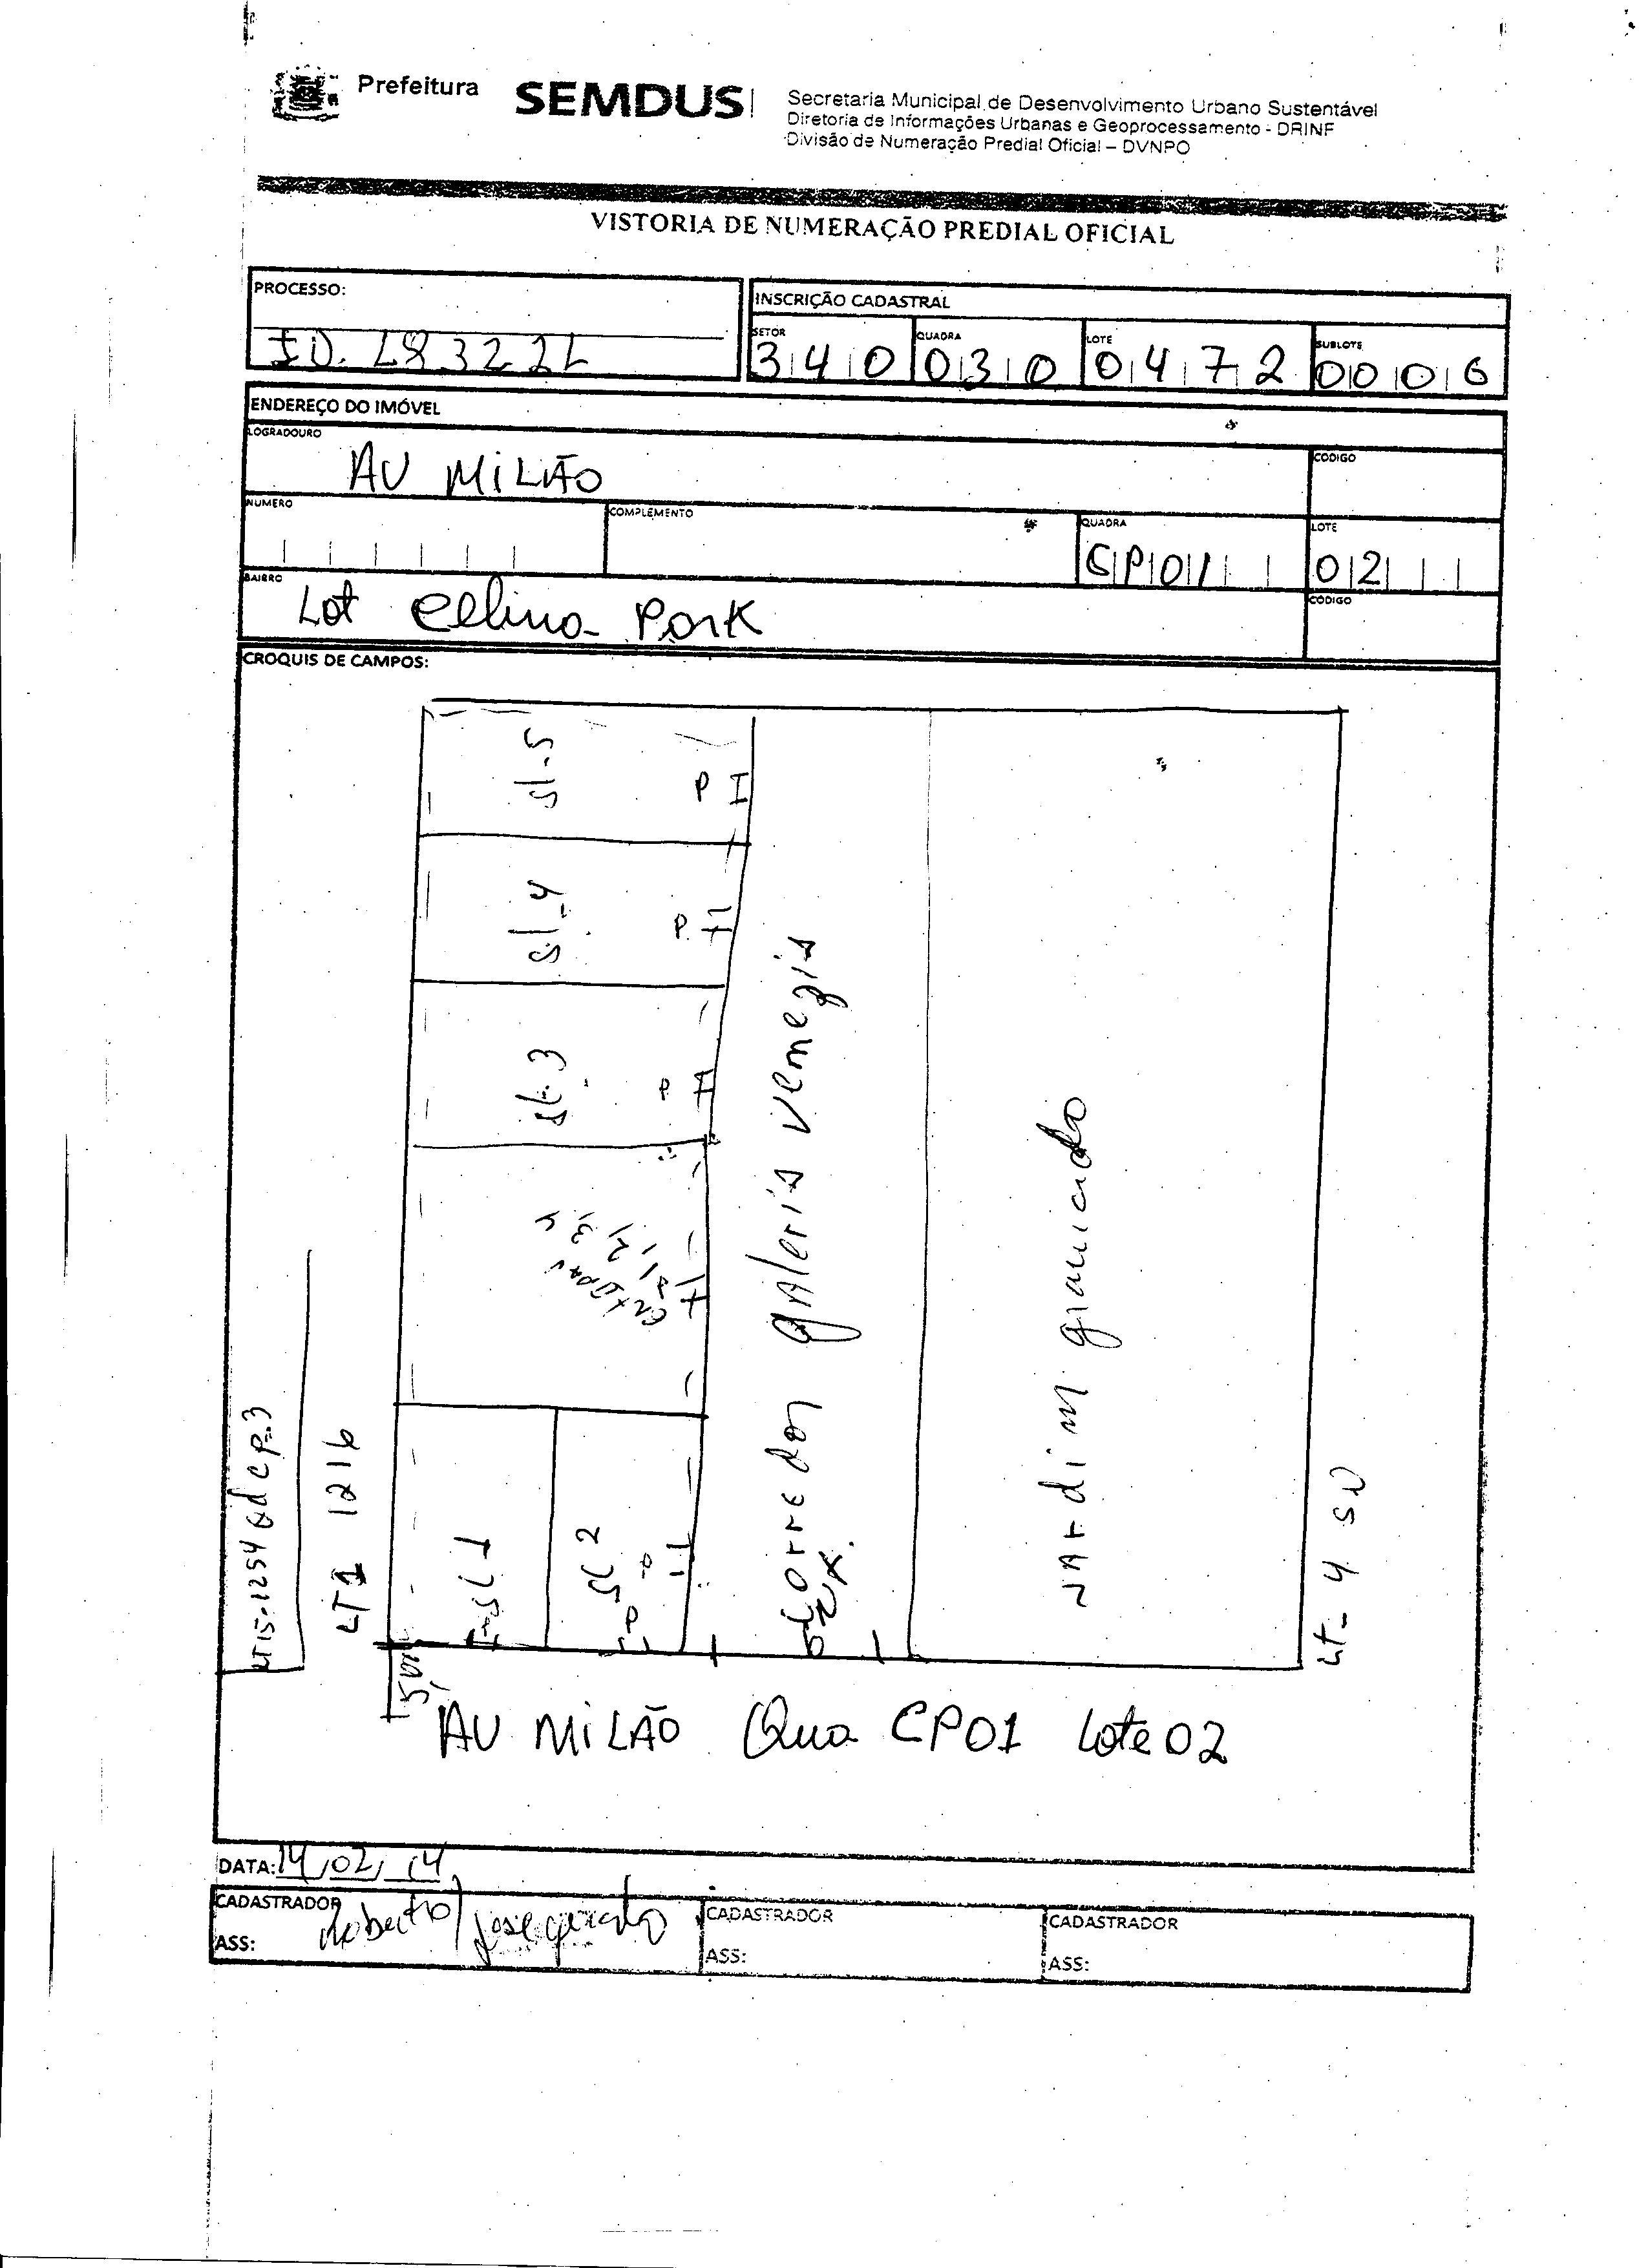 Prefeitura SEMDUS
Secretaria Municipal de Desenvolvimento Urbano Sustentável
Diretoria de Informações Urbanas e Geoprocessamento - DRINF
Divisão de Numeração Predial Oficial – DVNPO
VISTORIA DE NUMERAÇÃO PREDIAL OFICIAL
PROCESSO:
INSCRIÇÃO CADASTRAL
SETOR QUADRA LOTE SUBLOTE
340 030 0472 0006
ENDEREÇO DO IMÓVEL
LOGRADOURO
AV MILÃO
CODIGO
NUMERO COMPLEMENTO QUADRA LOTE
CP01 02
BAIRRO
Lot Celina Park
CODIGO
CROQUIS DE CAMPOS:
Sl-5
P
Sl-4
P
Sl-3
P
1, 2, 3, 4
Sl 1
Sl 2
Corredor galeria venezia
Jardim gramado
LT15-1254 Qd CP.3
LT1 1216
Lt-4 SN
AV MILÃO Qua CP01 Lote 02
DATA: 14/02/14
CADASTRADOR CADASTRADOR CADASTRADOR
Roberto / Jose geraldo
ASS: ASS: ASS: